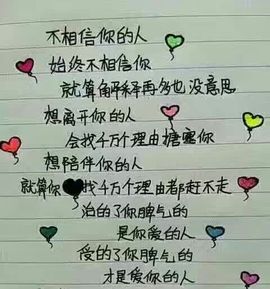 不相信你的人
始终不相信你
就算解释再多也没意思
想离开你的人
会找千万个理由搪塞你
想陪伴你的人
就算你找千万个理由都赶不走
治的了你脾气的
是你爱的人
受的了你脾气的
才是爱你的人